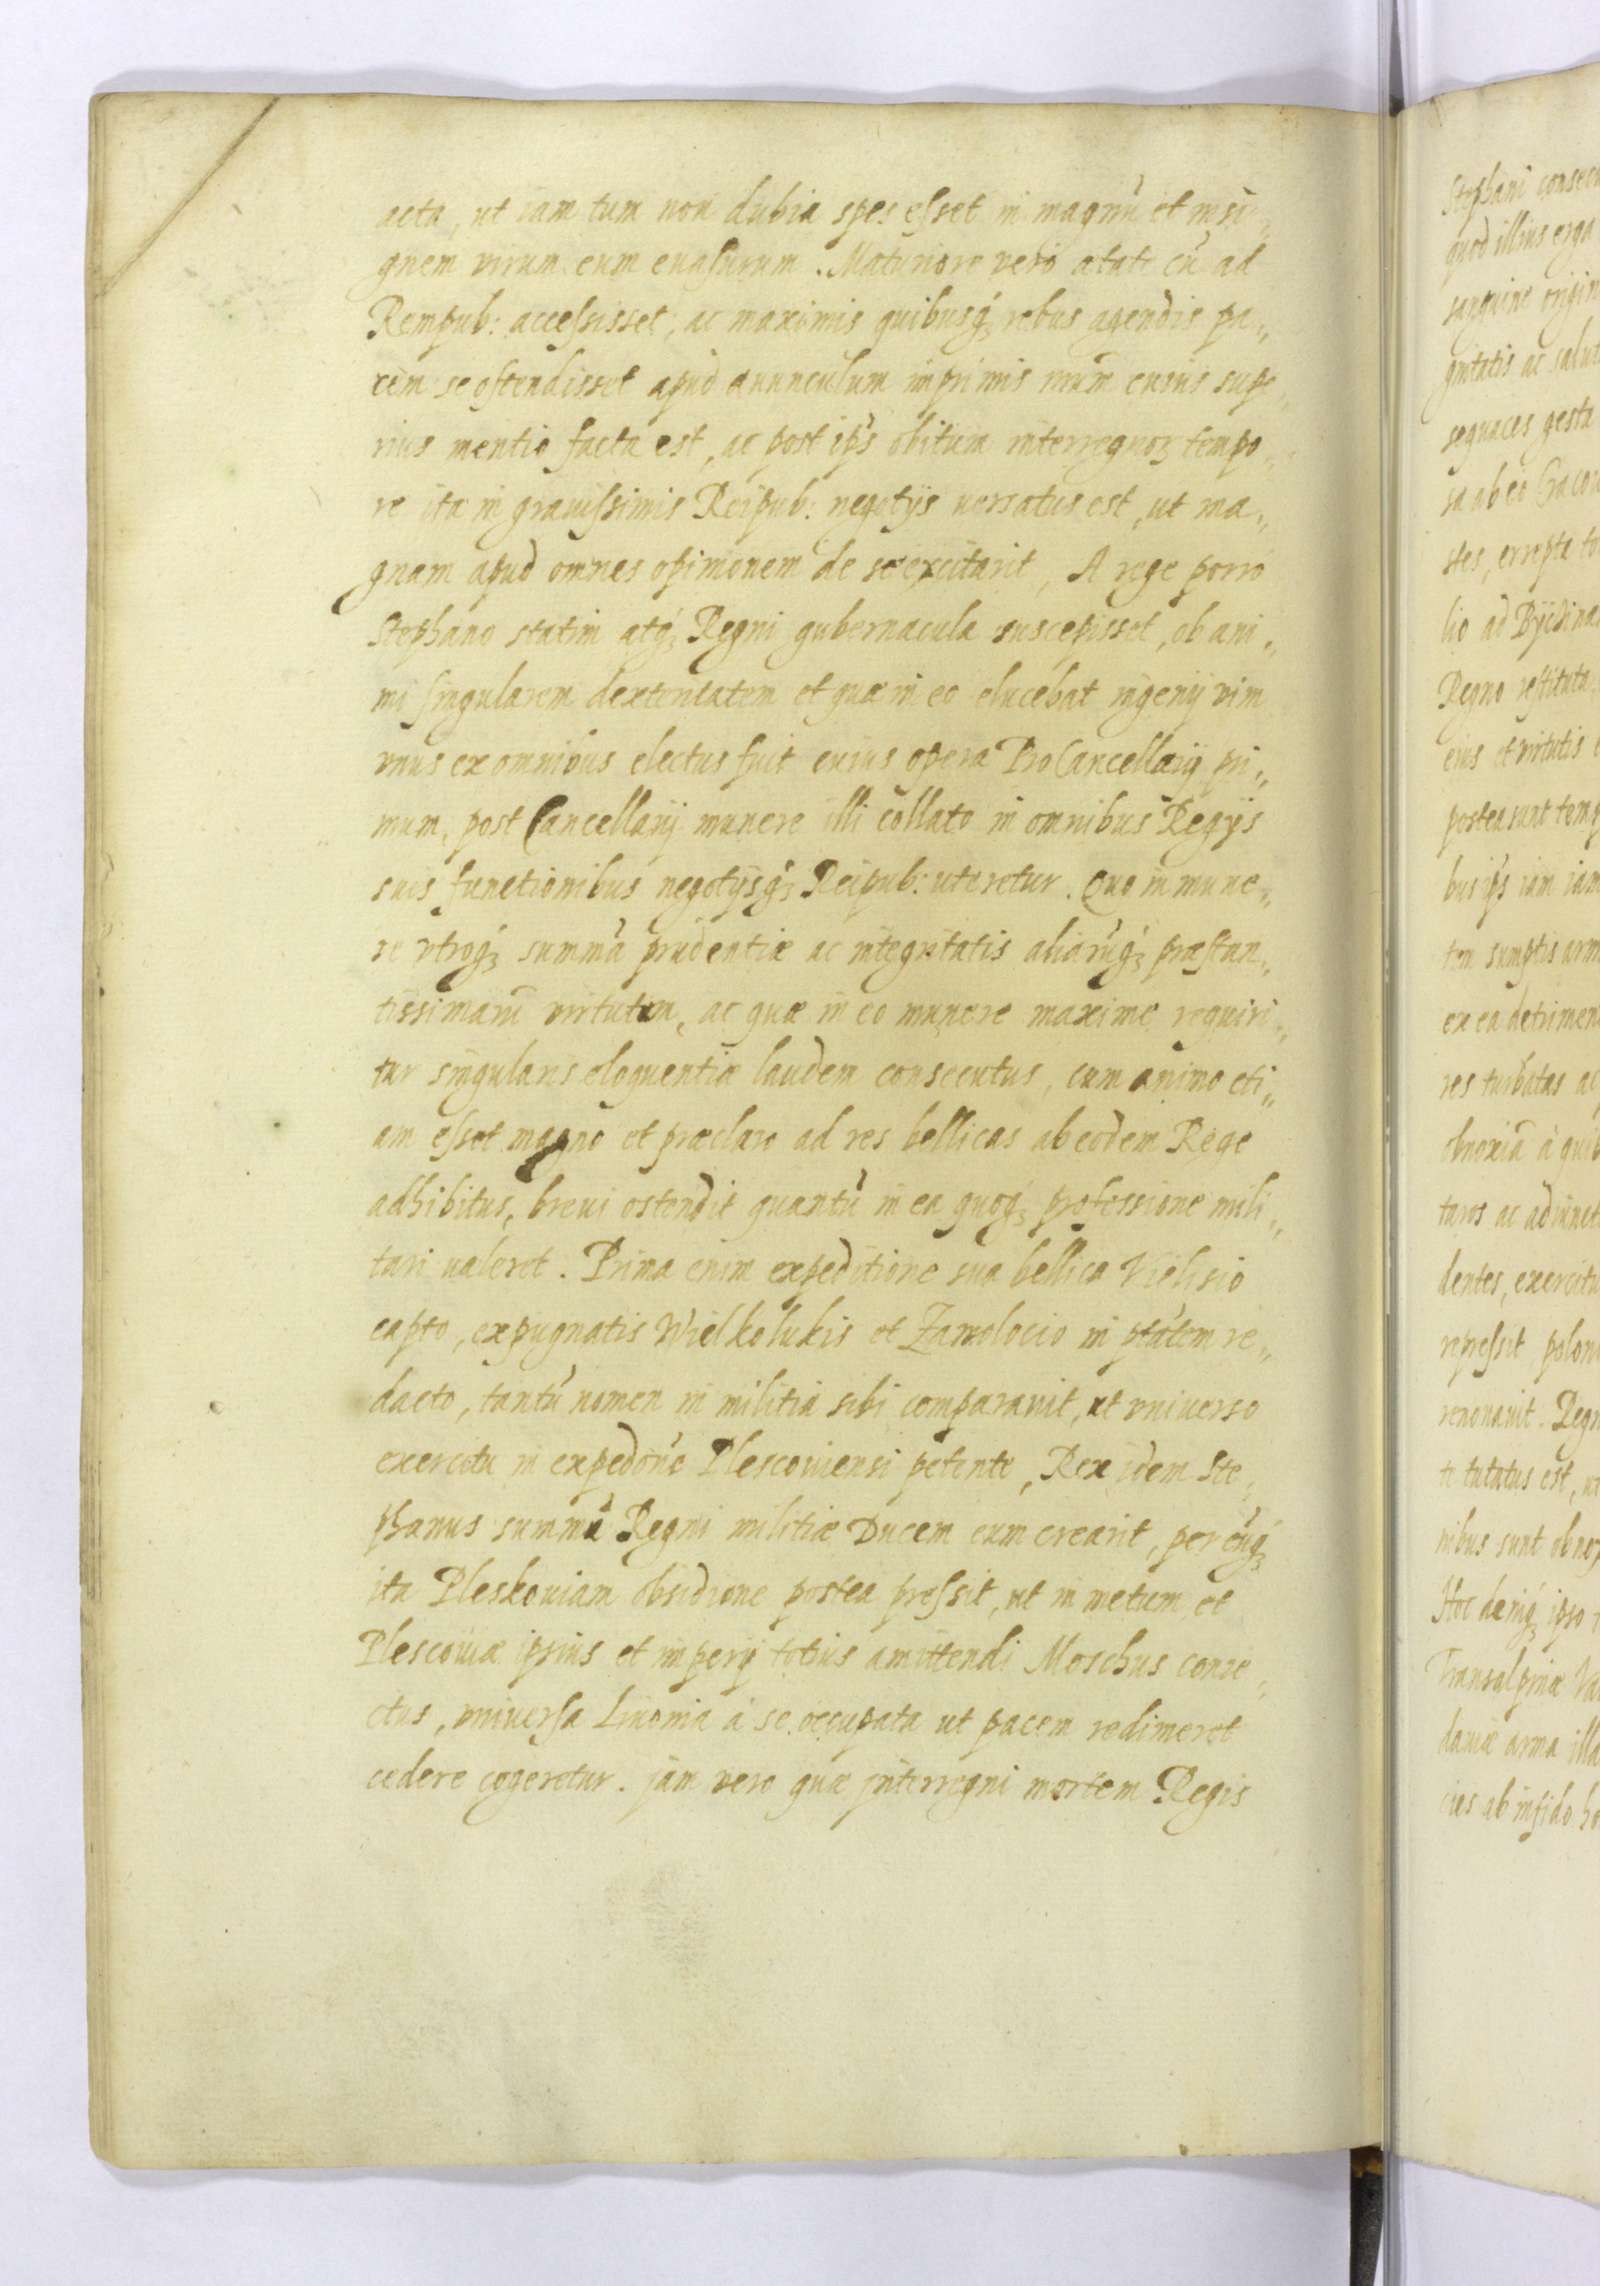 acta, ut iam tum non dubia spes esset in magnũ et insi„
gnem virum eum euasurum. Maturiore vero ætate cũ ad
Rempub: accessisset, ac maximis quibusq́ꝫ rebus agendis pa„
rem se ostendisset apud auunculum imprimis cuius supe„
rius mentio facta est, ac post ip̃s obitum interregnoꝝ tempo„
re ita in grauissimis Reipub: negotijs uersatus est, ut ma„
gnam apud omnes opinionem de se excitarit, A rege porro
Stephano statim atq́ꝫ Regni gubernacula suscepisset, ob ani„
mi singularem dexteritatem et quæ in eo elucebat ingenij vim
vnus ex omnibus electus fuit cuius opera ProCancellarij pri„
mum, post Cancellarij munere illi collato in omnibus Regijs
suis functionibus negotijsq́ꝫ Reipub: uteretur. Quo in mune„
re vtroq́ꝫ summã prudentiæ ac integritatis aliarũq́ꝫ præstan„
tissimarũ virtutum, ac quæ in eo munere maxime requiri„
tur singularis eloquentiæ laudem consecutus, cum animo eti„
am esset magno et præclaro ad res bellicas ab eodem Rege
adhibitus, breui ostendit quantũ in ea quoq́ꝫ professione mili„
tari ualeret. Prima enim expeditione sua bellica Vielisio
capto, expugnatis Wielkolukis et Zawolocio in ptãtem re„
dacto, tantũ nomen in militia sibi comparauit, ut vniuerso
exercitu in expedõne Plescouiensi petente, Rex idem Ste„
phanus summũ Regni militiæ Ducem eum crearit, per eũq́ꝫ
ita Pleskouiam obsidione postea pressit, ut in metum et
Plescouiæ ipsius et imperij totius amittendi Moschus conie„
ctus, vniuersa Liuonia à se occupata ut pacem redimeret
cedere cogeretur. jam vero quæ jnterregni mortem Regis
Stephani
quod illius erga
sanguine
gnitatis ac
sequaces gesta
sa ab eo
stes, errepta
lio ad
Regno restituta
eius et virtutis
postea sunt
bus ip̃s iam iam
tem sumptis
ex ea
res turbatas ac
obnoxiã à
turos ac
dentes,
repressit
renouauit.
te tutatus est,
nibus sunt
Hoc deniq́ꝫ ipso
Transalpinæ
dauiæ arma
cies ab infido